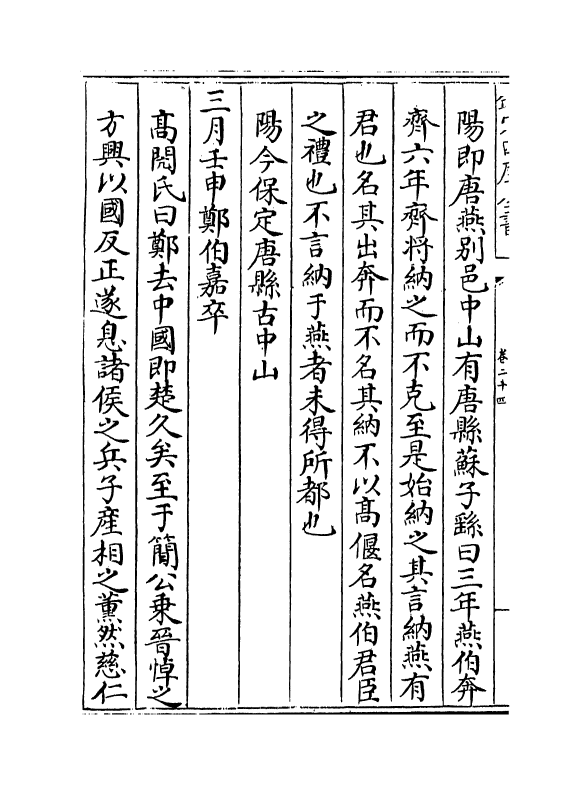 陽即唐燕别邑中山有唐縣蘇子繇曰三年燕伯奔
齊六年齊将納之而不克至是始納之其言納燕有
君也名其出奔而不名其納不以髙偃名燕伯君臣
之禮也不言納于燕者未得所都也
陽今保定唐縣古中山
三月壬申鄭伯嘉卒
髙閌氏曰鄭去中國即楚久矣至于簡公乗晉悼之
方興以國反正遂息諸侯之兵子産相之薫然慈仁
卷二十四